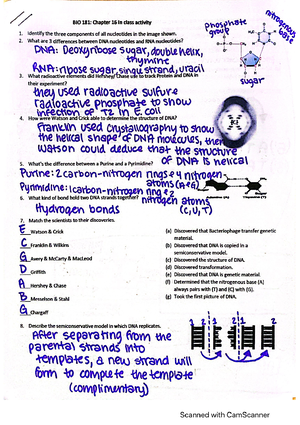 BIO 181: Chapter 16 in class activity
1. Identify the three components of all nucleotides in the image shown.
phosphate group
nitrogenous base
sugar
2. What are 3 differences between DNA nucleotides and RNA nucleotides?
DNA: Deoxyribose sugar, double helix, thymine
RNA: ribose sugar, single strand, uracil
3. What radioactive elements did Hershey/Chase use to track Protein and DNA in their experiment?
they used radioactive sulfur
radioactive phosphate to show
infection of T2 in E coli
4. How were Watson and Crick able to determine the structure of DNA?
Franklin used crystallography to show
the helical shape of DNA molecules, then
Watson could deduce that the structure
of DNA is helical
5. What's the difference between a Purine and a Pyrimidine?
Purine: 2 carbon-nitrogen rings & 4 nitrogen
atoms (A & G)
Pyrimidine: 1 carbon-nitrogen ring & 2
nitrogen atoms
(C, U, T)
6. What kind of bond held two DNA strands together?
Hydrogen bonds
7. Match the scientists to their discoveries.
E Watson & Crick
C Franklin & Wilkins
G Avery & McCarty & MacLeod
D Griffith
A Hershey & Chase
B Messelson & Stahl
G Chargaff
(a) Discovered that Bacteriophage transfer genetic material.
(b) Discovered that DNA is copied in a semiconservative model.
(c) Discovered the structure of DNA.
(d) Discovered transformation.
(e) Discovered that DNA is genetic material.
(f) Determined that the nitrogenous base (A) always pairs with (T) and (C) with (G).
(g) Took the first picture of DNA.
8. Describe the semiconservative model in which DNA replicates.
After separating from the
parental strands into
templates, a new strand will
form to complete the template
(complimentary)
Scanned with CamScanner